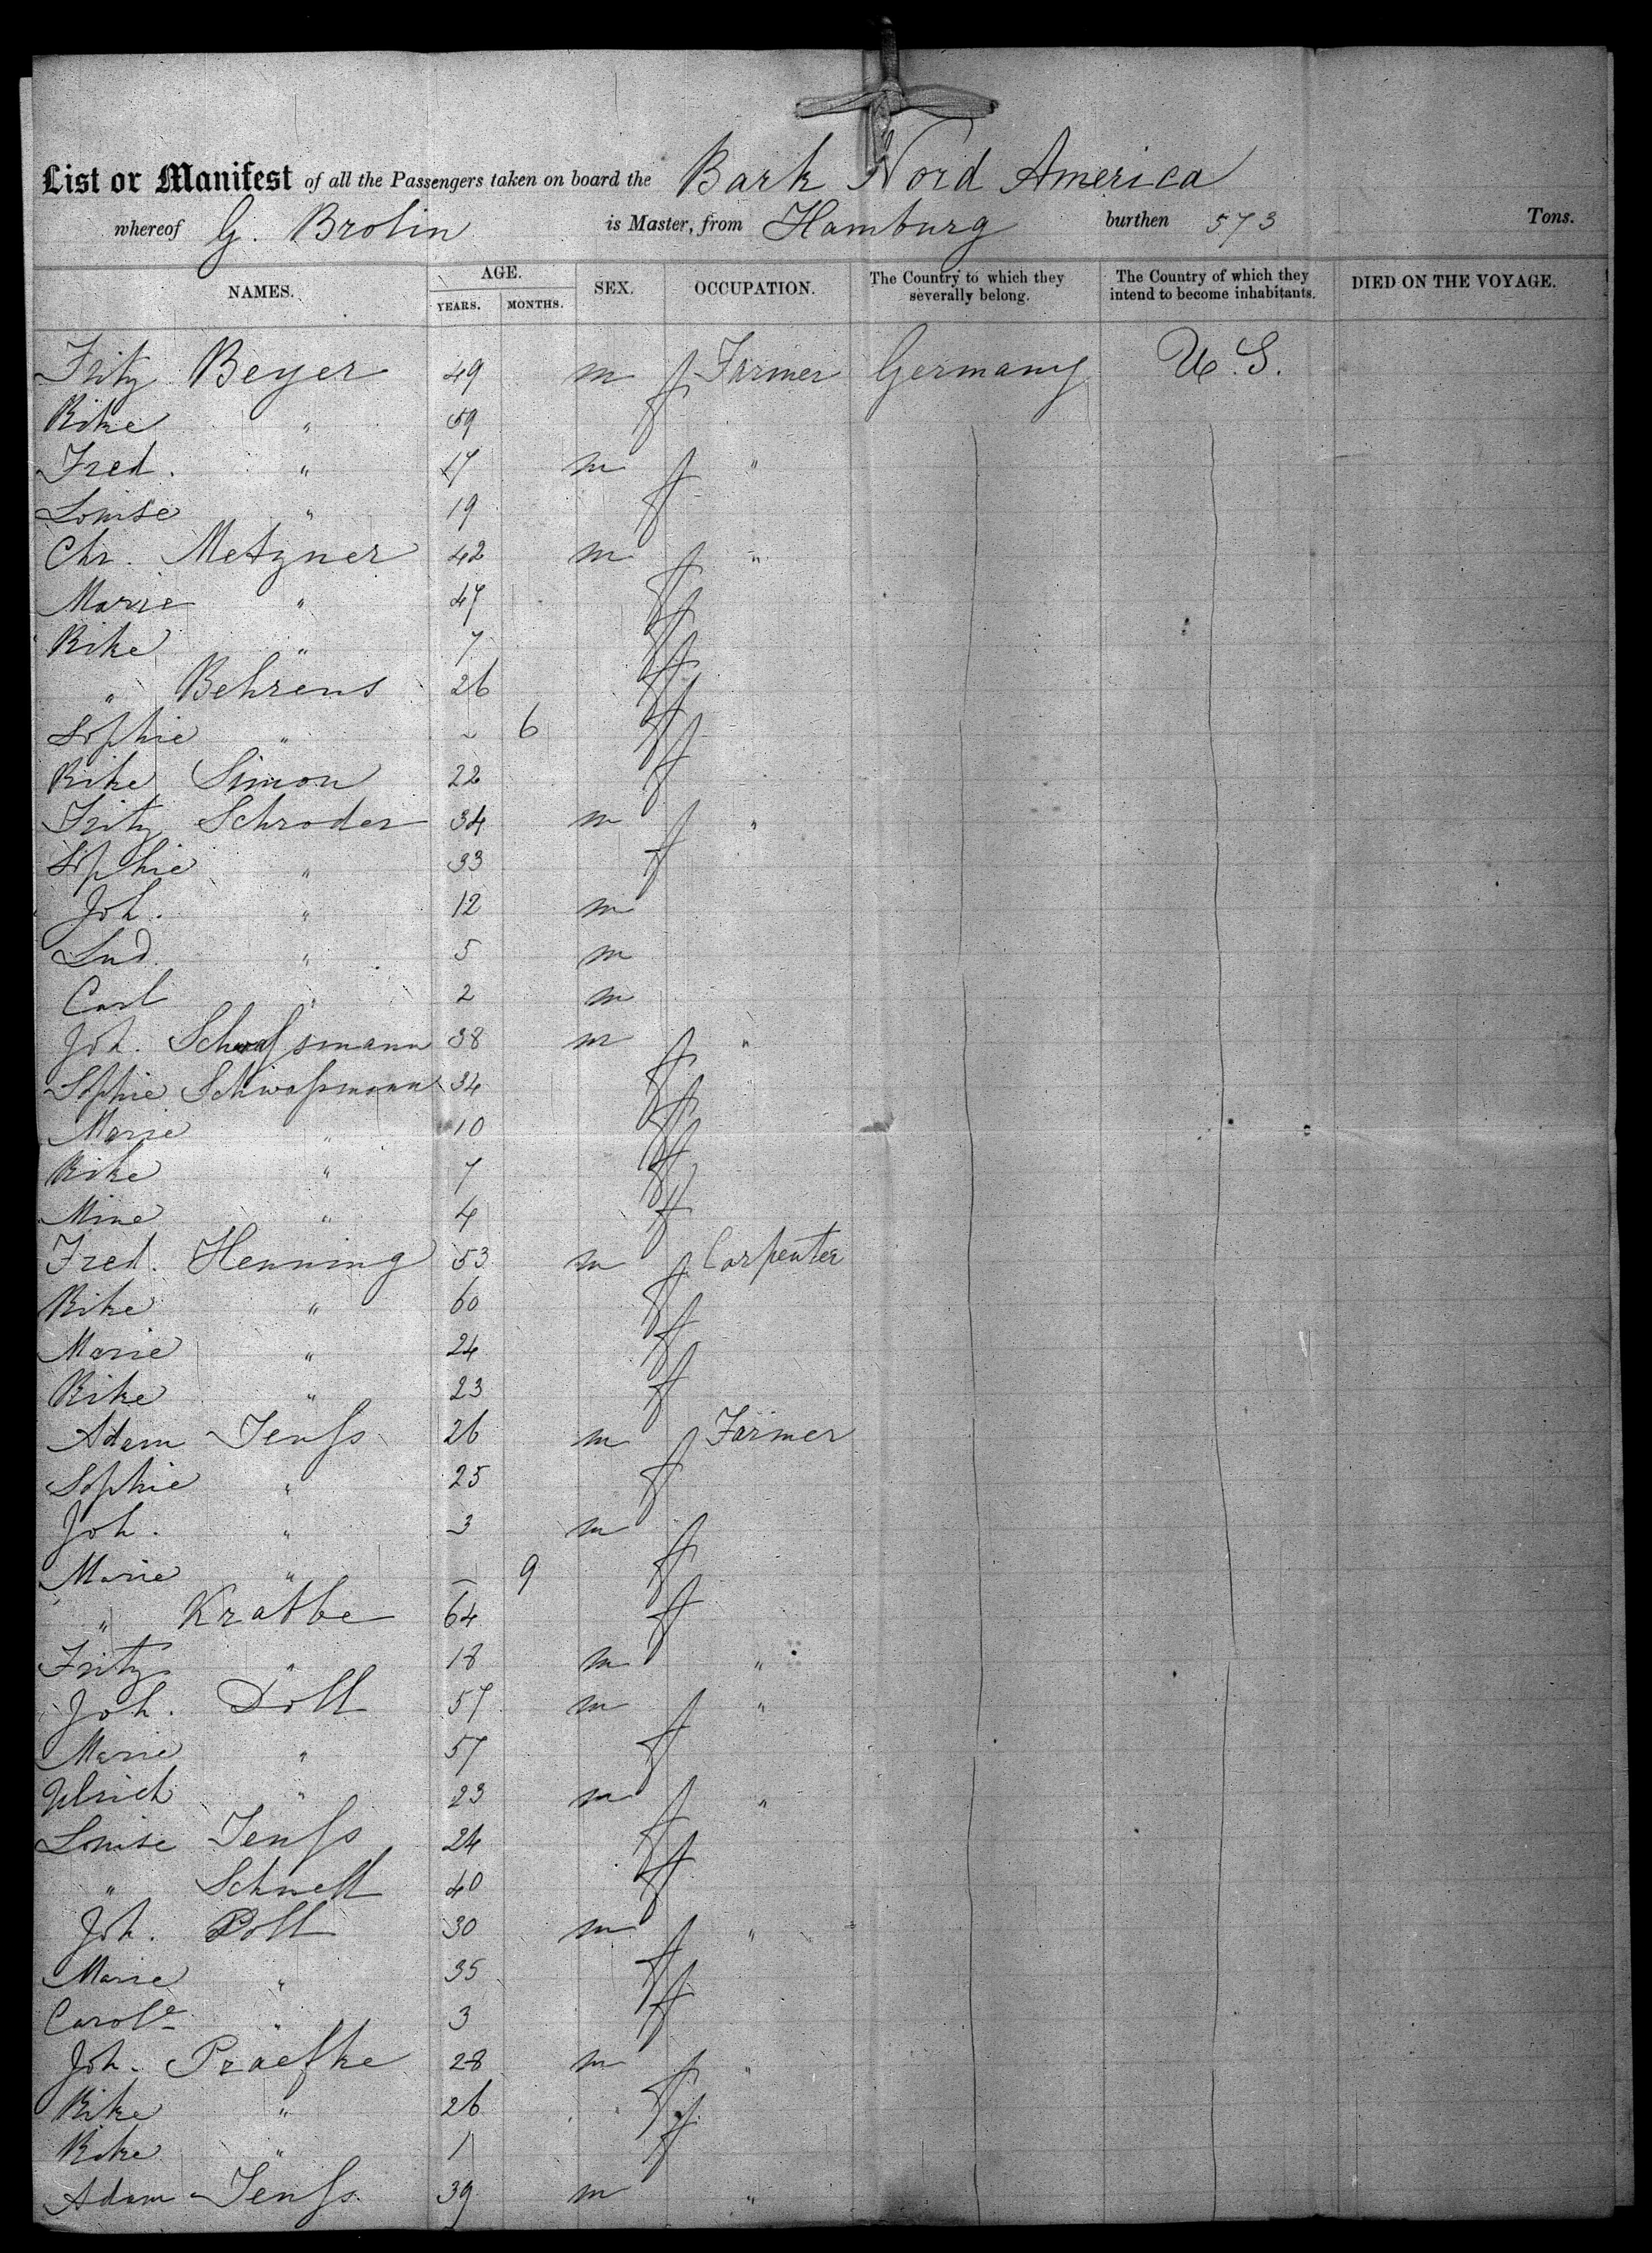 List or Manifest of all the Passengers taken on board the Bark Nord America
whereof G. Brolin is Master, from Hamburg burthen 573 Tons.
NAMES. AGE. YEARS. MONTHS. SEX. OCCUPATION. The Country to which they severally belong. The Country of which they intend to become inhabitants. DIED ON THE VOYAGE.
Fritz Beyer 49 m Farmer Germany U.S.
Rike " 59 f
Fred. " 17 m "
Louise " 19 f
Chr. Metzner 42 m "
Marie " 47 f
Rike " 7 f
" Behrens 26 f
Sophie " – 6 f
Rike Simon 22 f
Fritz Schroder 34 m "
Sophie " 33 f
Joh. " 12 m
Lud. " 5 m
Carl " 2 m
Joh. Schwaſsmann 38 m "
Sophie Schwaſsmann 34 f
Marie " 10 f
Rike " 7 f
Mine " 4 f
Fred. Henning 53 m Carpenter
Rike " 60 f
Marie " 24 f
Rike " 23 f
Adam Jenſs 26 m Farmer
Sophie " 25 f
Joh. " 3 m
Marie " – 9 f
" Krabbe 64 f
Fritz " 18 m "
Joh. Doll 57 m "
Marie " 57 f
Ulrich " 23 m "
Louise Jenſs 24 f
" Schnell 40 f
Joh. Doll 30 m "
Marie " 35 f
Carole " 3 f
Joh. Praefke 28 m "
Rike " 26 f
Rike " 1 f
Adam Jenſs 39 m "